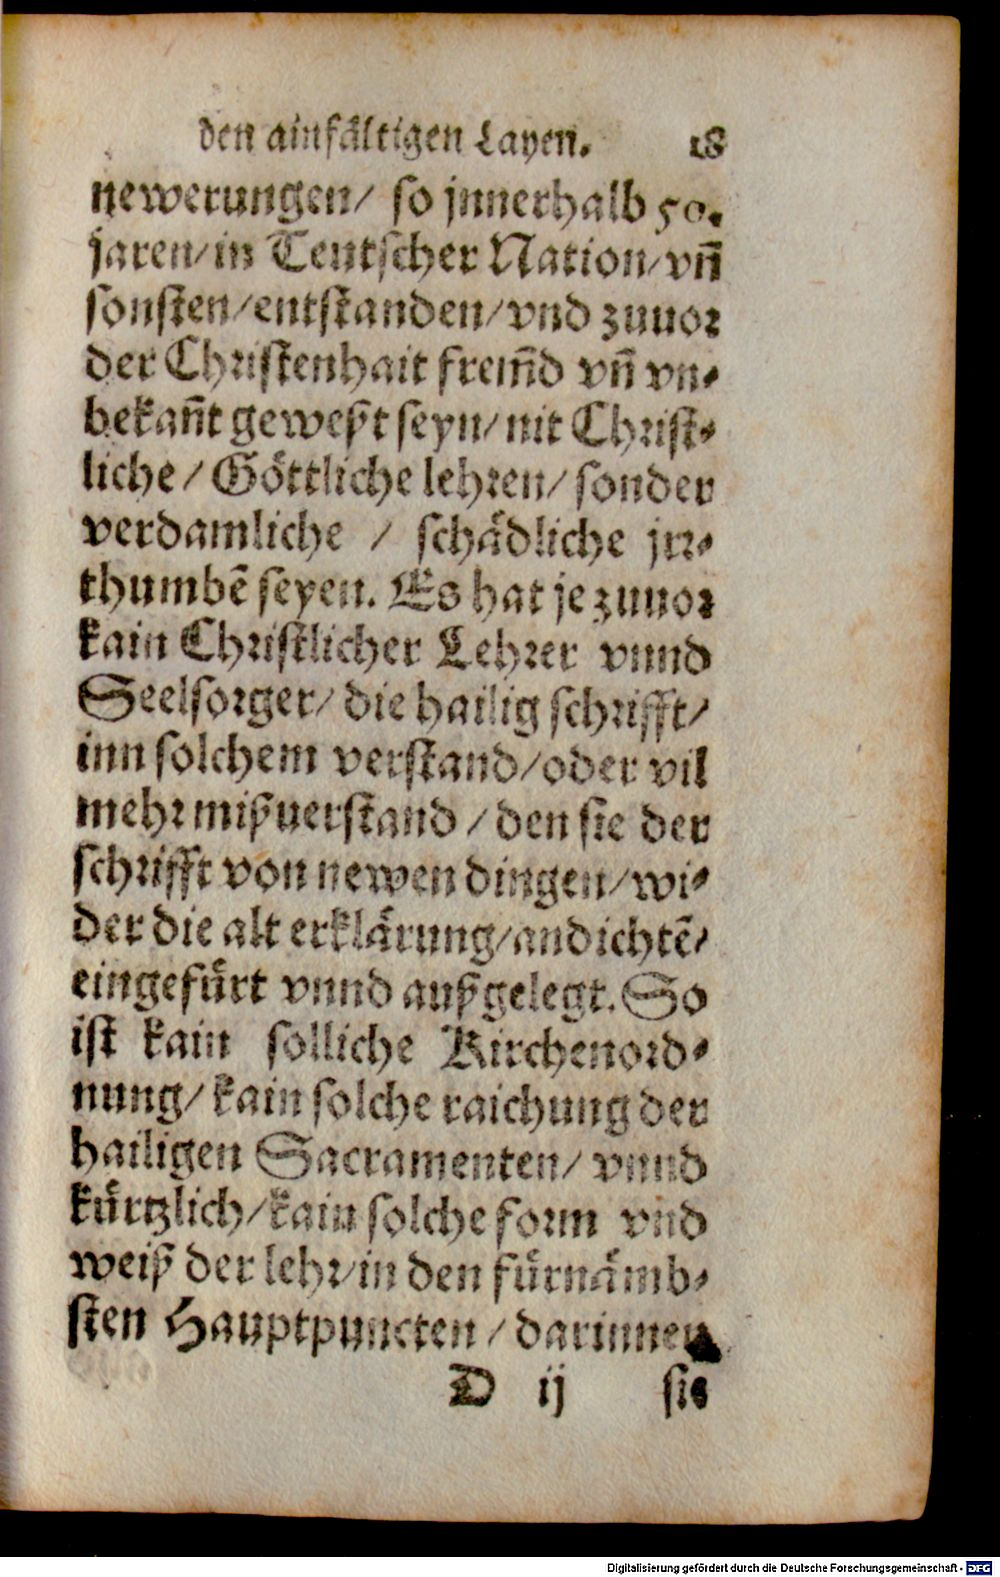 den ainfåltigen Layen. 18
newerungen/ so jnnerhalb 50.
jaren/in Teutscher Nation/vn̄
sonsten/entstanden/vnd zuuor
der Christenhait frem̄d vn̄ vn-
bekan̄t geweßt seyn/nit Christ-
liche/Göttliche lehren/sonder
verdamliche / schådliche jrr-
thumbē seyen. Es hat je zuuor
kain Christlicher Lehrer vnnd
Seelsorger/die hailig schrifft/
inn solchem verstand/oder vil
mehr mißuerstand/den sie der
schrifft von newen dingen/wi-
der die alt erklårung/andichtē/
eingefůrt vnnd außgelegt. So
ist kain solliche Kirchenord-
nung/kain solche raichung der
hailigen Sacramenten/ vnnd
kůrtzlich/kain solche form vnd
weiß der lehr/in den fůrnåmb-
sten Hauptpuncten/darinnen
D ij sie
Digitalisierung gefördert durch die Deutsche Forschungsgemeinschaft - DFG